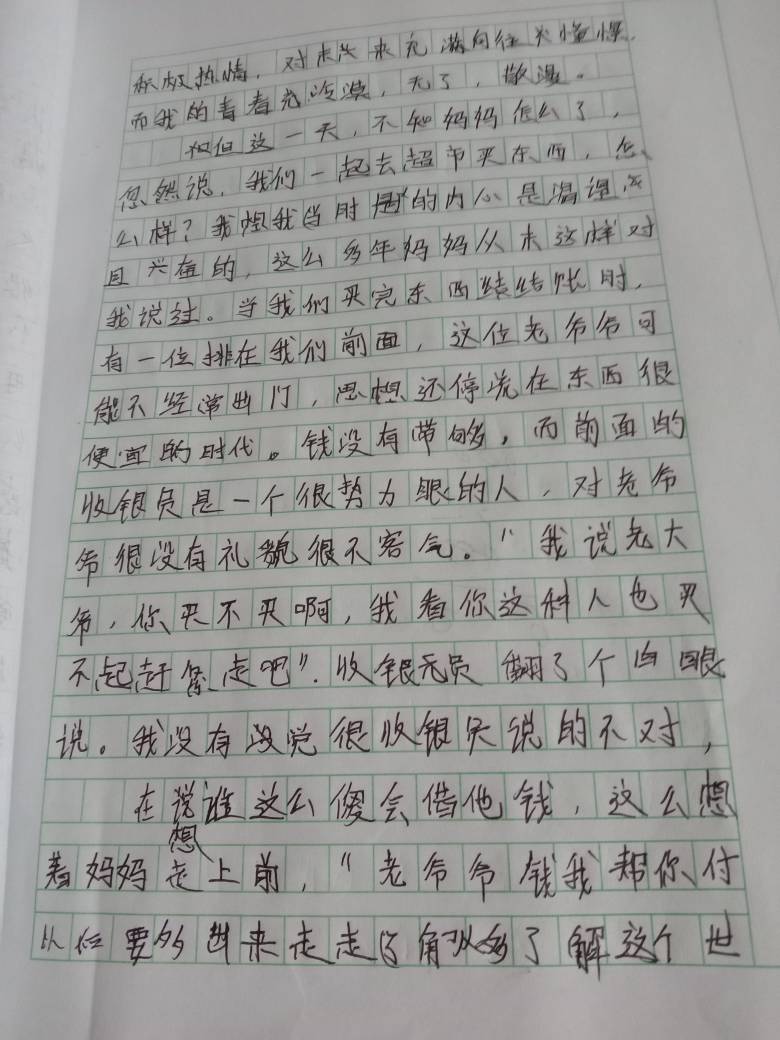 积极热情，对未来充满向往火憧憬，
而我的青春充冷漠，无了，散漫。
但这一天，不知妈妈怎么了，
忽然说，我们一起去超市买东西，怎
么样？我想我当时的内心是渴望
且兴奋的，这么多年妈妈从未这样对
我说过。当我们买完东西结结账时，
有一位排在我们前面，这位老爷爷可
能不经常出门，思想还停流在东西很
便宜的时代。钱没有带够，而前面的
收银员是一个很势力眼的人，对老爷
爷很没有礼貌很不客气。"我说老大
爷，你买不买啊，我看你这种人也买
不起赶紧走吧"。收银员翻了个白眼
说。我没有没觉很收银员说的不对，
在说谁这么傻会借他钱，这么想
着妈妈走上前，"老爷爷钱我帮你付
以后要多出来走走多了解这个世